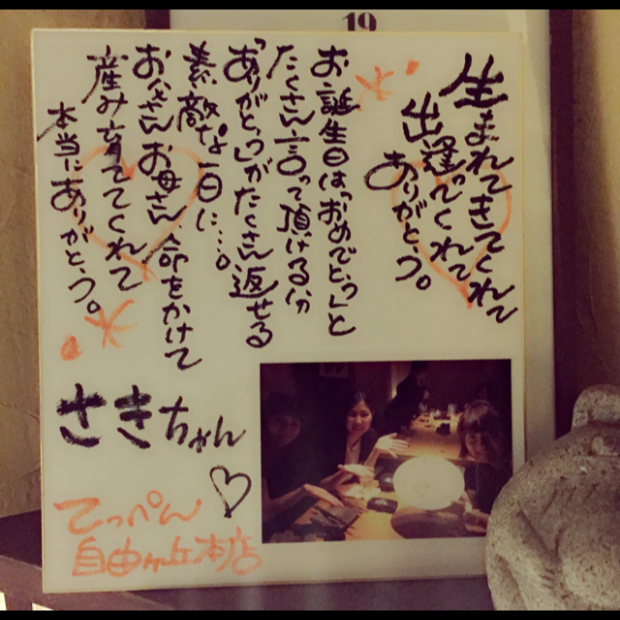 19
生まれてきてくれて
出逢ってくれて
ありがとう。
お誕生日は「おめでとう」と
たくさん言って頂ける分
「ありがとう」がたくさん返せる
素敵な一日に…。
お父さんお母さん、命をかけて
産み育ててくれて
本当にありがとう。
さきちゃん
てっぺん
自由ヶ丘本店